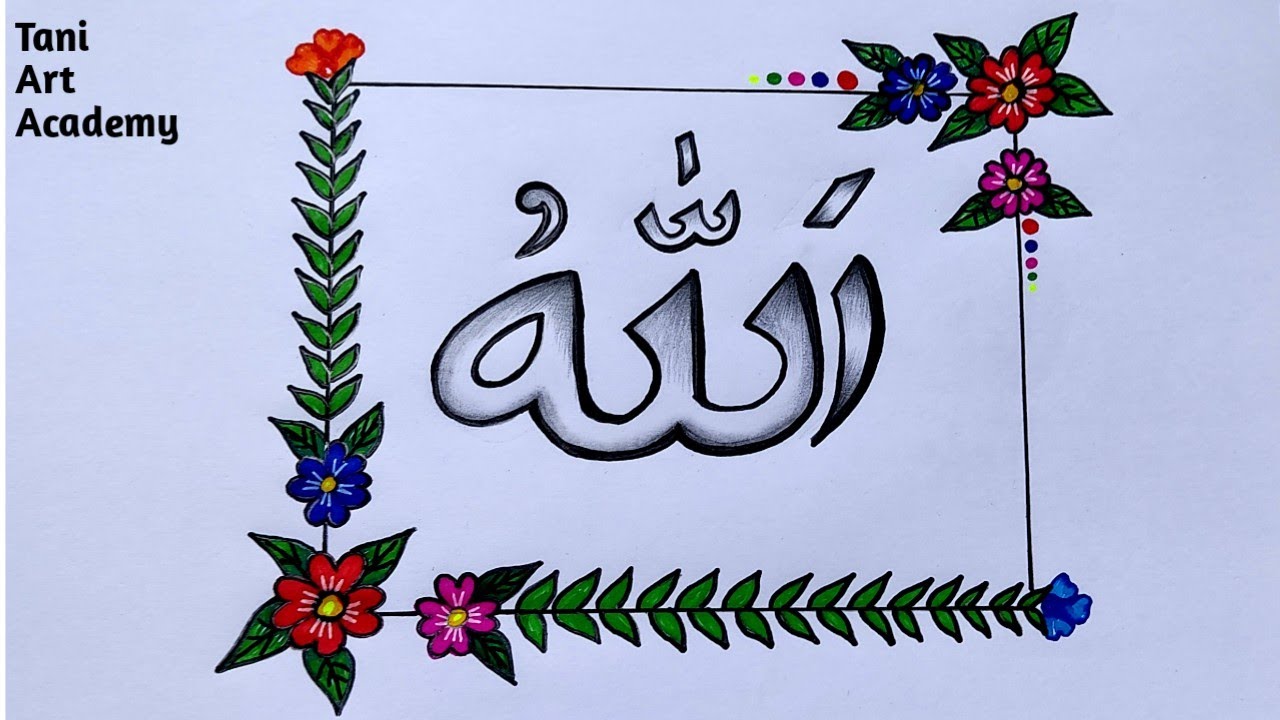 Tani
Art
Academy
اَللّٰهُ